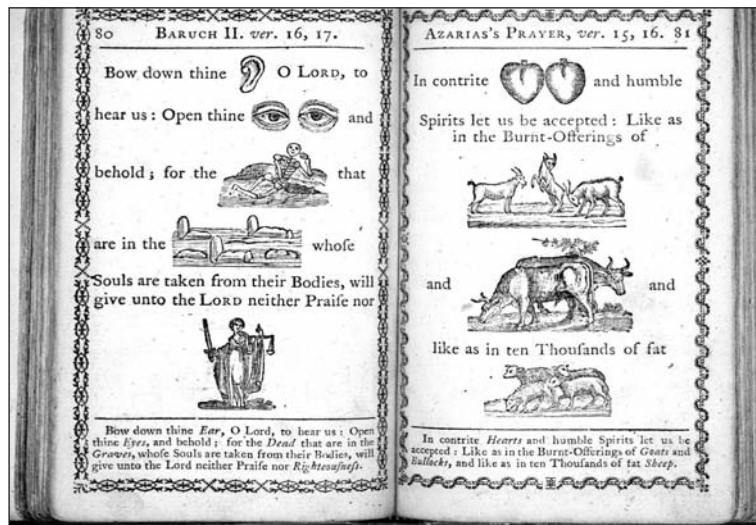 80 BARUCH II. ver. 16, 17.
Bow down thine O LORD, to
hear us : Open thine and
behold ; for the that
are in the whoſe
Souls are taken from their Bodies, will
give unto the LORD neither Praiſe nor
Bow down thine Ear, O Lord, to hear us : Open
thine Eyes, and behold ; for the Dead that are in the
Graves, whoſe Souls are taken from their Bodies, will
give unto the Lord neither Praiſe nor Righteouſneſs.
AZARIAS'S PRAYER, ver. 15, 16. 81
In contrite and humble
Spirits let us be accepted : Like as
in the Burnt-Offerings of
and and
like as in ten Thouſands of fat
In contrite Hearts and humble Spirits let us be
accepted : Like as in the Burnt-Offerings of Goats and
Bullocks, and like as in ten Thouſands of fat Sheep.